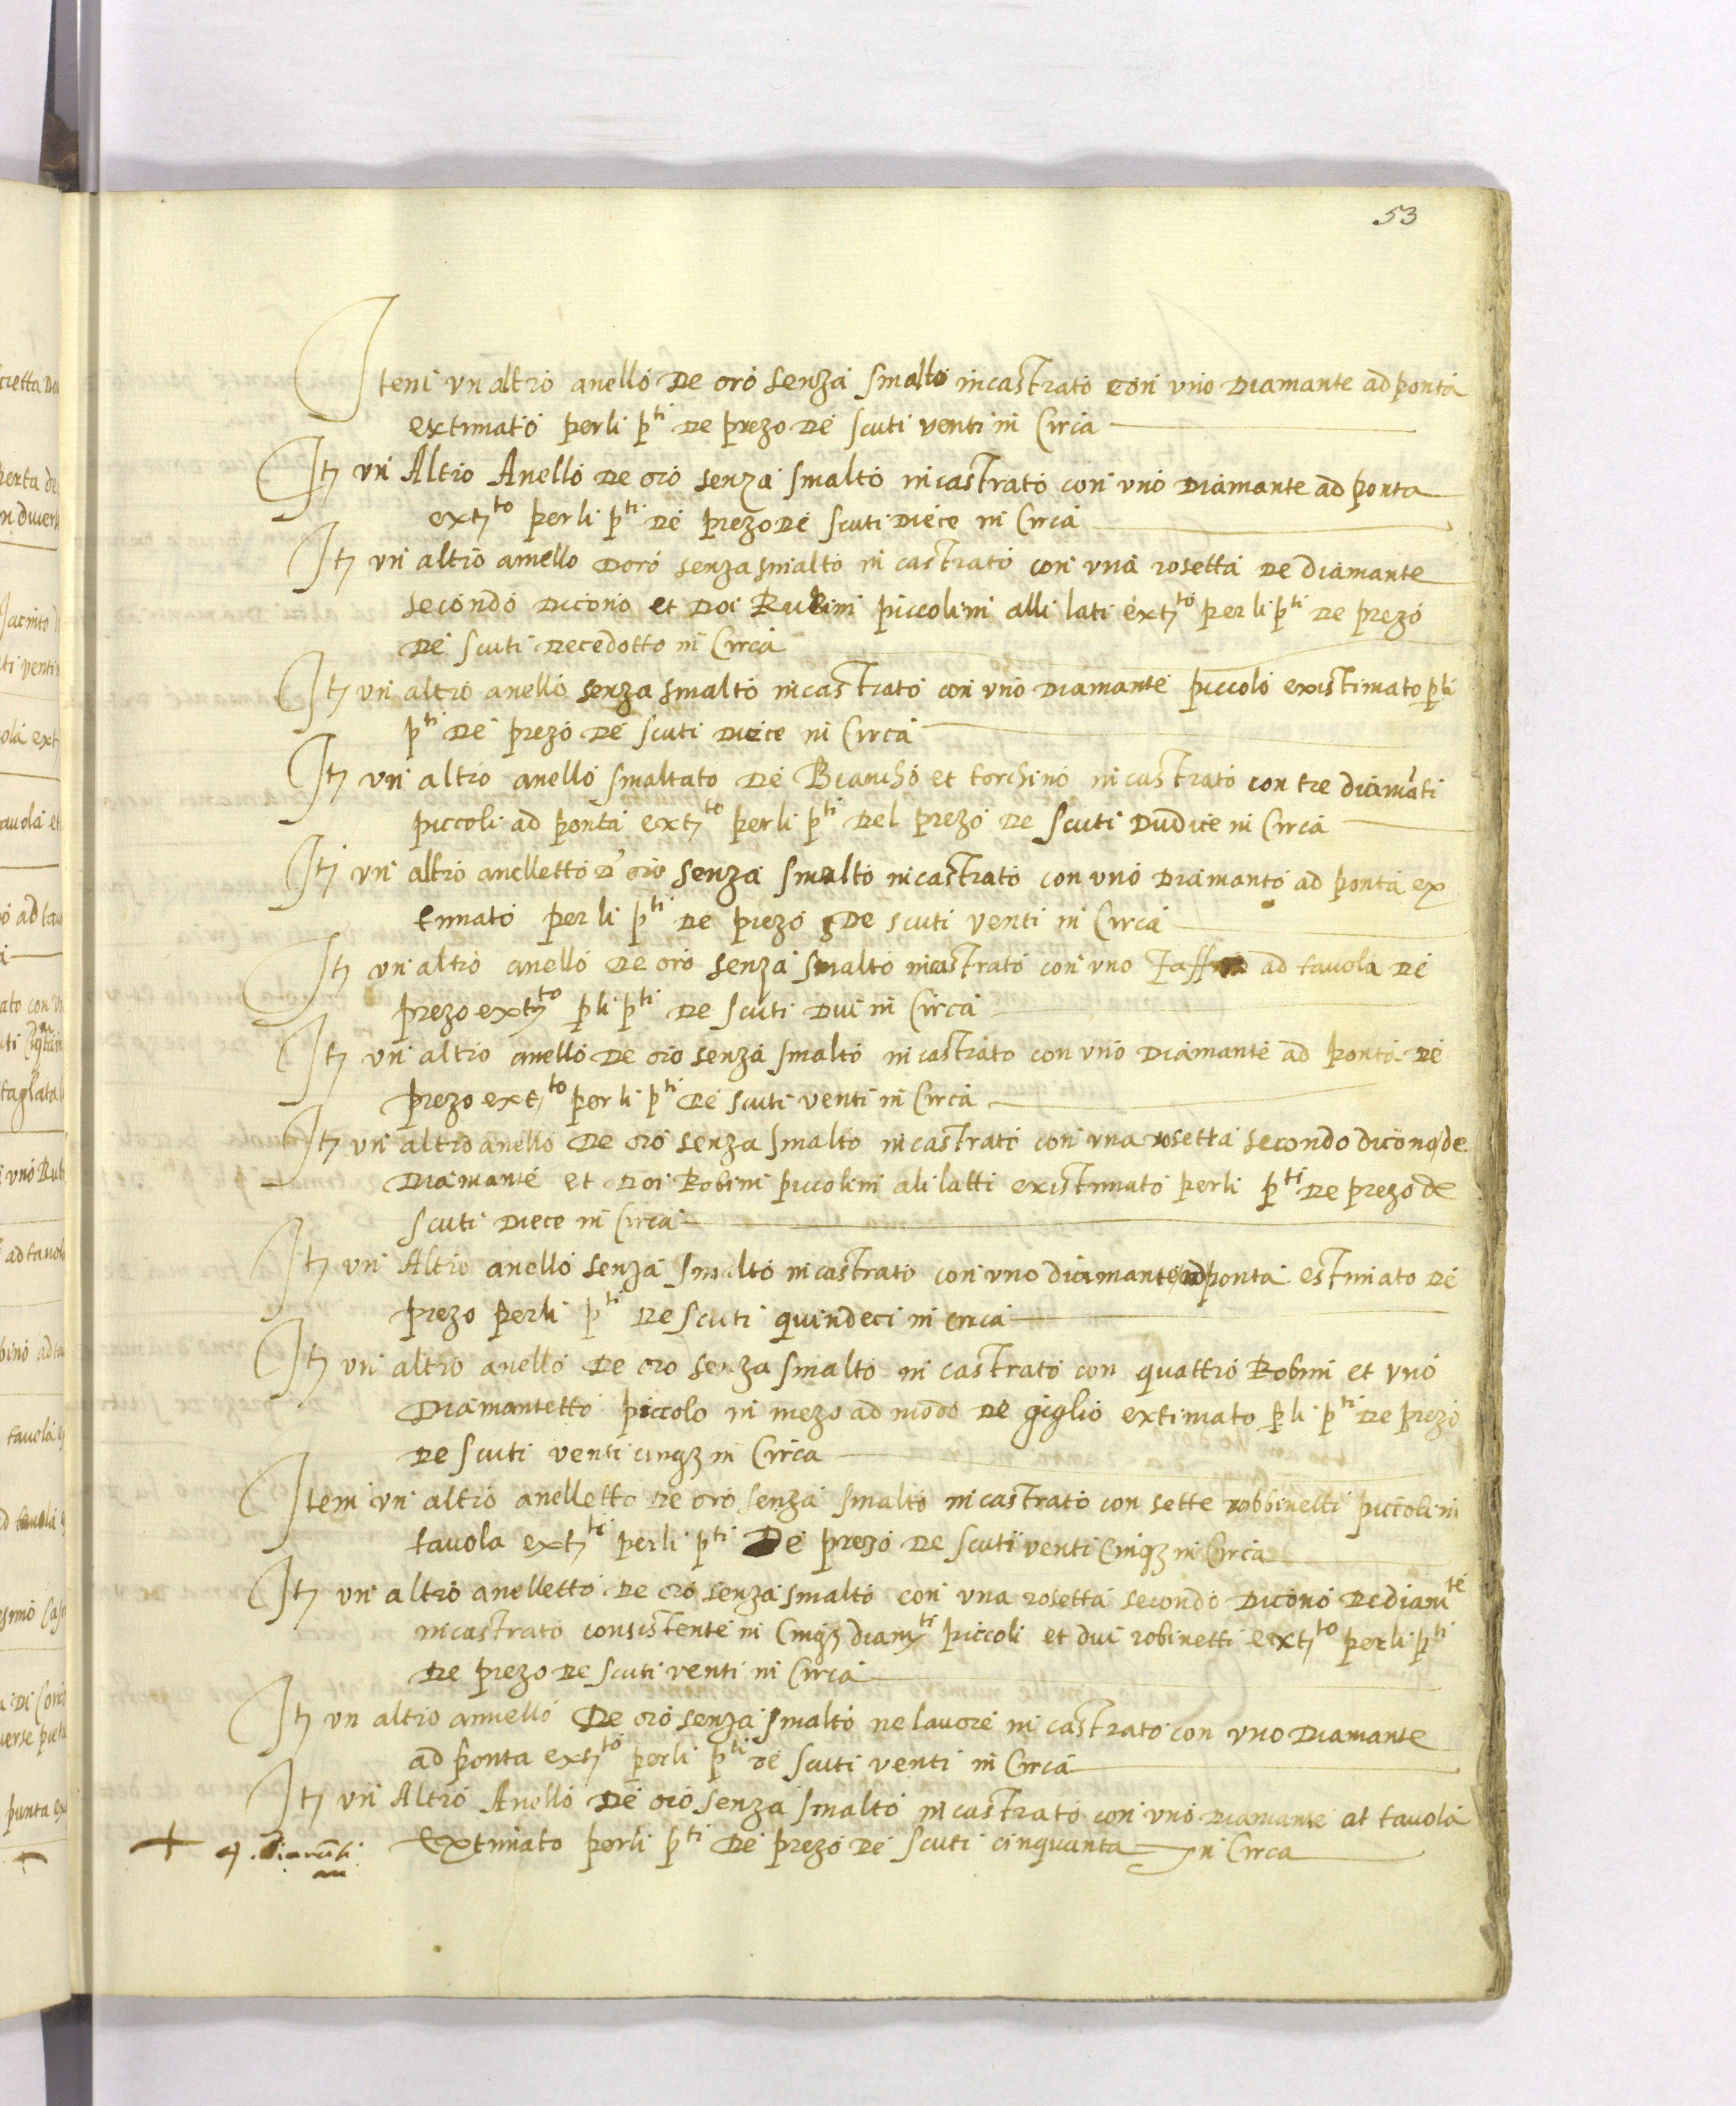 53
Item un altro anello de oro senza smalto incastrato con uno diamante ad ponta
extimato per li p.ti de prezo de scuti venti in Circa
It un Altro Anello de oro senza smalto incastrato con uno diamante ad ponta
ext.to per li p.ti de prezo de scuti diece in Circa
It un altro annello doro senza smalto in castrato con una rosetta de diamante
secondo dicono et doi Rubini piccolini alli lati ext.to per li p.ti de prezo
de scuti decedotto in Circa
It un altro anello senza smalto incastrato con uno diamante piccolo existimato p li
p.ti de prezo de scuti diece in Circa
It un altro anello smaltato de Biancho et torchino incastrato con tre diamāti
piccoli ad ponta ext.to per li p.ti del prezo de scuti dudice in Circa
It un altro anelletto d' oro senza smalto incastrato con uno diamanto ad ponta ex
timato per li p.ti de prezo de scuti venti in Circa
It un altro anello de oro senza smalto incastrato con uno ad tavola de
prezo ext.to p li p.ti de scuti dui in Circa
It un altro anello de oro senza smalto incastrato con uno diamante ad ponta de
prezo ext.to per li p.ti de scuti venti in Circa
It un altro anello de oro senza smalto incastrato con una rosetta secondo dicono de
diamante et doi Robini piccolini ali latti existimato per li p.ti de prezo de
scuti diece in Circa
It un Altro anello senza smalto incastrato con uno diamante ad ponta estimato de
prezo per li p.ti de scuti quindeci in circa
It un altro anello de oro senza smalto in castrato con quattro Robini et uno
diamantetto piccolo in mezo ad modo de giglio extimato p li p.ti de prezo
de scuti venti cinq3 in Circa
Item un altro anelletto de oro senza smalto incastrato con sette robbinetti piccolini
tavola ext.ti per li p.ti De prezo de scuti venti Cinq3 in Circa
It un altro anelletto de oro senza smalto con una rosetta secondo dicono de diam.te
incastrato consistente in Cinq3 diam.ti piccoli et dui robinetti ext.to per li p.ti
de prezo de scuti venti in Circa
It un altro annello De oro senza smalto ne lavore in castrato con uno diamante
ad ponta ext.to per li p.ti de scuti venti in Circa
It un Altro Anello De oro senza smalto incastrato con uno diamante at tavola
Extimato per li p.ti de prezo de scuti cinquanta in Circa